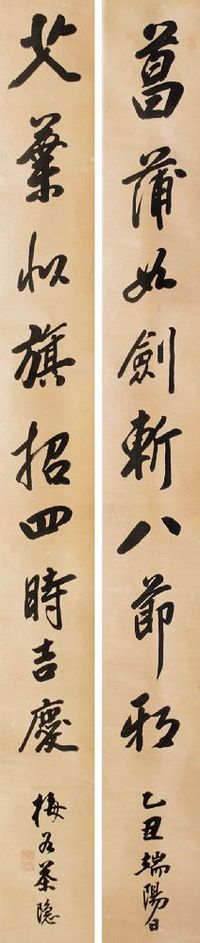 菖蒲如劍斬八節邪
乙丑端陽日
艾葉似旗招四時吉慶
梅石茶隱